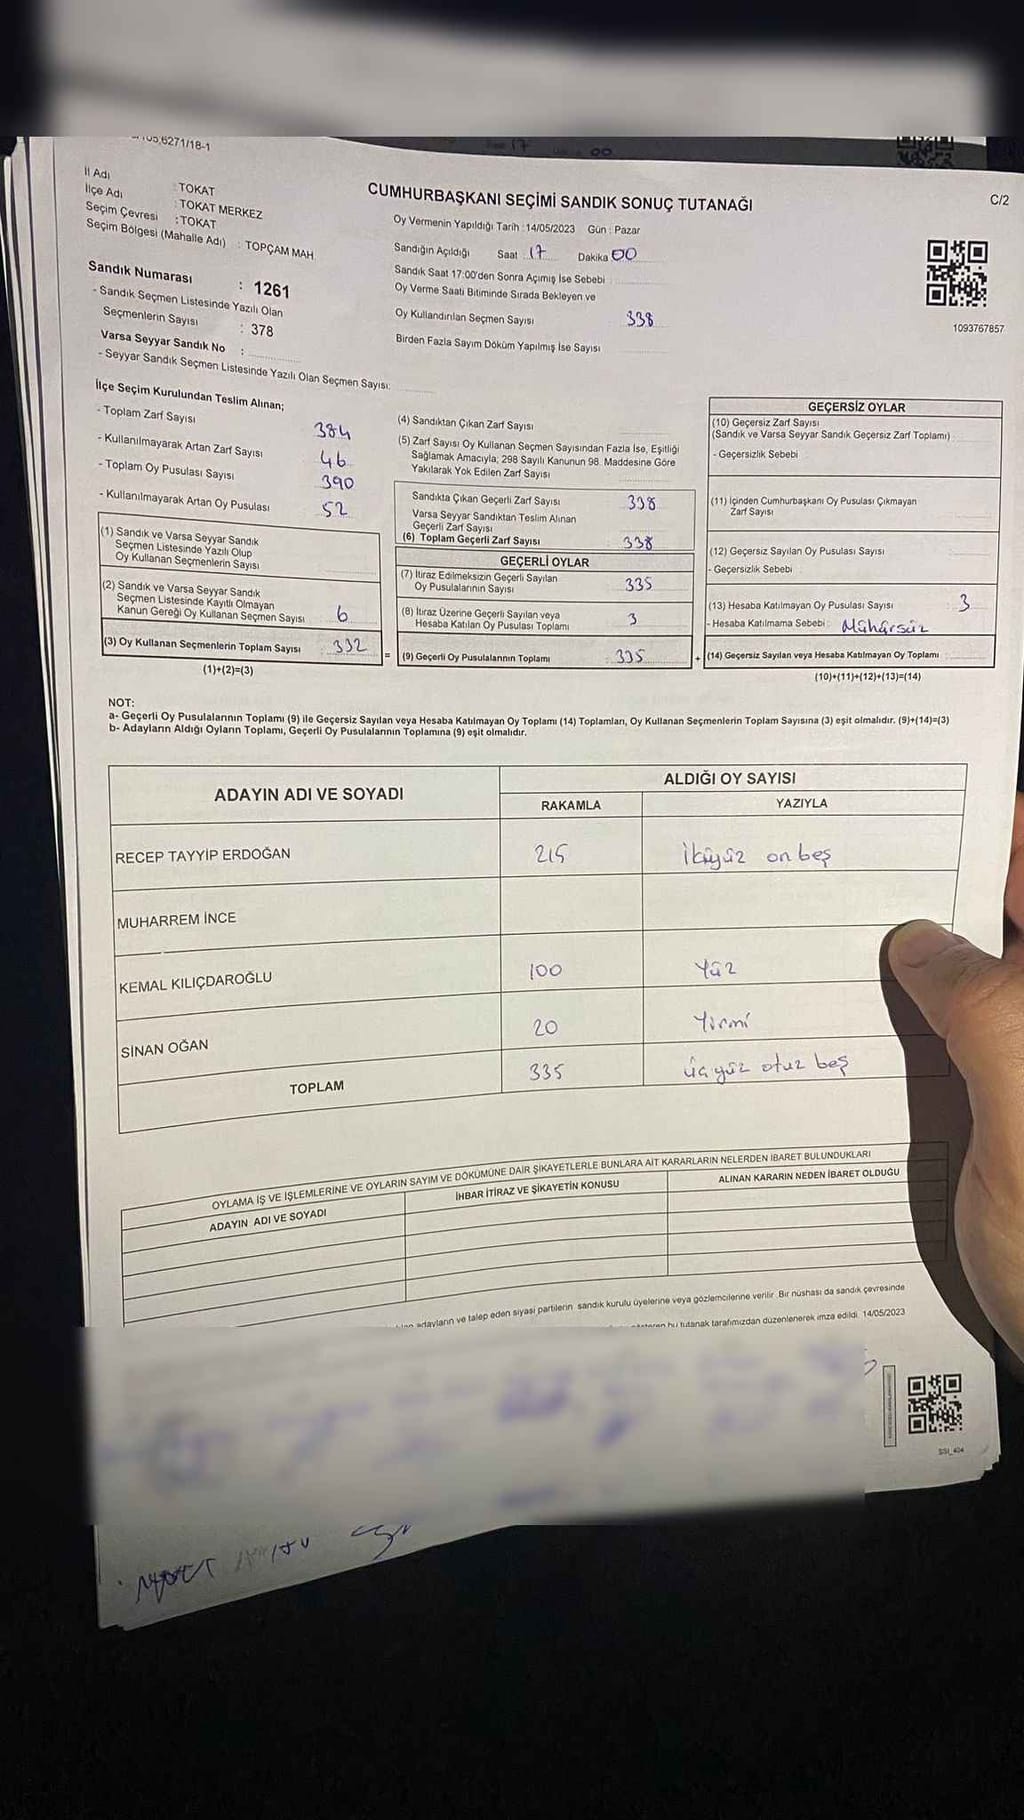 6271/18-1
İl Adı : TOKAT
İlçe Adı : TOKAT MERKEZ
Seçim Çevresi : TOKAT
Seçim Bölgesi (Mahalle Adı) : TOPÇAM MAH
Sandık Numarası : 1261
- Sandık Seçmen Listesinde Yazılı Olan
Seçmenlerin Sayısı : 378
Varsa Seyyar Sandık No :
- Seyyar Sandık Seçmen Listesinde Yazılı Olan Seçmen Sayısı:
CUMHURBAŞKANI SEÇİMİ SANDIK SONUÇ TUTANAĞI
C/2
Oy Vermenin Yapıldığı Tarih :14/05/2023 Gün : Pazar
Sandığın Açıldığı Saat 17 Dakika 00
Sandık Saat 17:00'den Sonra Açımış İse Sebebi
Oy Verme Saati Bitiminde Sırada Bekleyen ve
Oy Kullandırılan Seçmen Sayısı 338
Birden Fazla Sayım Döküm Yapılmış İse Sayısı
1093767857
İlçe Seçim Kurulundan Teslim Alınan;
- Toplam Zarf Sayısı 384
- Kullanılmayarak Artan Zarf Sayısı 46
- Toplam Oy Pusulası Sayısı 390
- Kullanılmayarak Artan Oy Pusulası 52
(1) Sandık ve Varsa Seyyar Sandık
Seçmen Listesinde Yazılı Olup
Oy Kullanan Seçmenlerin Sayısı
(2) Sandık ve Varsa Seyyar Sandık
Seçmen Listesinde Kayıtlı Olmayan
Kanun Gereği Oy Kullanan Seçmen Sayısı 6
(3) Oy Kullanan Seçmenlerin Toplam Sayısı : 332
(1)+(2)=(3)
(4) Sandıktan Çıkan Zarf Sayısı
(5) Zarf Sayısı Oy Kullanan Seçmen Sayısından Fazla İse, Eşitliği
Sağlamak Amacıyla, 298 Sayılı Kanunun 98. Maddesine Göre
Yakılarak Yok Edilen Zarf Sayısı
Sandıkta Çıkan Geçerli Zarf Sayısı 338
Varsa Seyyar Sandıktan Teslim Alınan
Geçerli Zarf Sayısı
(6) Toplam Geçerli Zarf Sayısı 338
GEÇERLİ OYLAR
(7) İtiraz Edilmeksizin Geçerli Sayılan
Oy Pusulalarının Sayısı 335
(8) İtiraz Üzerine Geçerli Sayılan veya
Hesaba Katılan Oy Pusulası Toplamı 3
= (9) Geçerli Oy Pusulalarının Toplamı : 335
GEÇERSİZ OYLAR
(10) Geçersiz Zarf Sayısı
(Sandık ve Varsa Seyyar Sandık Geçersiz Zarf Toplamı)
- Geçersizlik Sebebi
(11) İçinden Cumhurbaşkanı Oy Pusulası Çıkmayan
Zarf Sayısı
(12) Geçersiz Sayılan Oy Pusulası Sayısı
- Geçersizlik Sebebi
(13) Hesaba Katılmayan Oy Pusulası Sayısı : 3
- Hesaba Katılmama Sebebi : Mühürsüz
+ (14) Geçersiz Sayılan veya Hesaba Katılmayan Oy Toplamı
(10)+(11)+(12)+(13)=(14)
NOT:
a- Geçerli Oy Pusulalarının Toplamı (9) ile Geçersiz Sayılan veya Hesaba Katılmayan Oy Toplamı (14) Toplamları, Oy Kullanan Seçmenlerin Toplam Sayısına (3) eşit olmalıdır. (9)+(14)=(3)
b- Adayların Aldığı Oyların Toplamı, Geçerli Oy Pusulalarının Toplamına (9) eşit olmalıdır.
ADAYIN ADI VE SOYADI
ALDIĞI OY SAYISI
RAKAMLA YAZIYLA
RECEP TAYYİP ERDOĞAN 215 ikiyüz on beş
MUHARREM İNCE
KEMAL KILIÇDAROĞLU 100 Yüz
SİNAN OĞAN 20 Yirmi
TOPLAM 335 üçyüz otuz beş
OYLAMA İŞ VE İŞLEMLERİNE VE OYLARIN SAYIM VE DÖKÜMÜNE DAİR ŞİKAYETLERLE BUNLARA AİT KARARLARIN NELERDEN İBARET BULUNDUKLARI
ADAYIN ADI VE SOYADI İHBAR İTİRAZ VE ŞİKAYETİN KONUSU ALINAN KARARIN NEDEN İBARET OLDUĞU
adayların ve talep eden siyasi partilerin sandık kurulu üyelerine veya gözlemcilerine verilir. Bir nüshası da sandık çevresinde
bu tutanak tarafımızdan düzenlenerek imza edildi. 14/05/2023